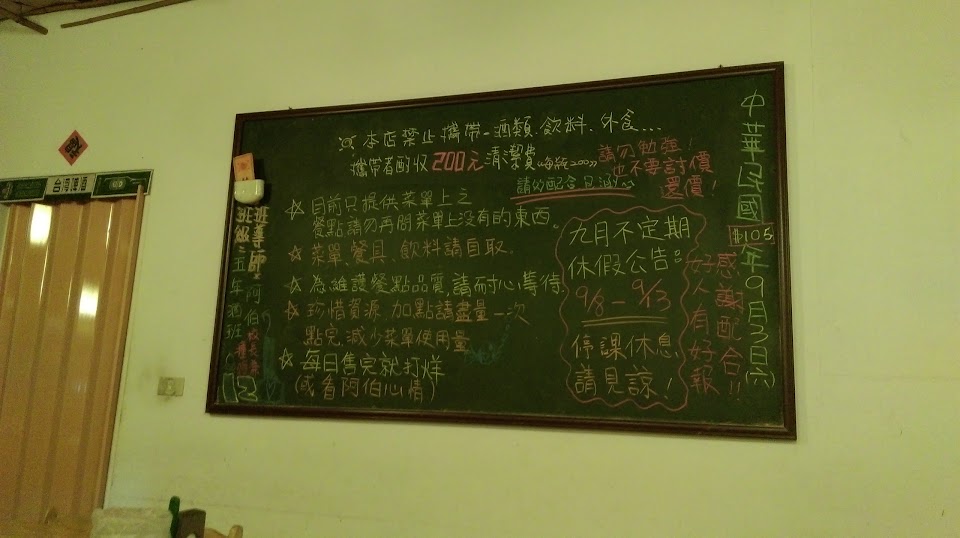 中華民國105年9月3日(六)
感謝配合!!
好人有好報
本店禁止攜帶-酒類.飲料.外食...
攜帶者酌收200元清潔費
請勿勉強!
也不要討價
還價!
目前只提供菜單上之
餐點請勿再問菜單上沒有的東西。
菜單、餐具、飲料請自取.
為維護餐點品質,請耐心等待.
珍惜資源 加點請盡量一次
點完,減少菜單使用量
每日售完就打烊
(或看阿伯心情)
九月不定期
休假公告:
9/8-9/13
停課休息
請見諒!
班導師
阿伯
班級